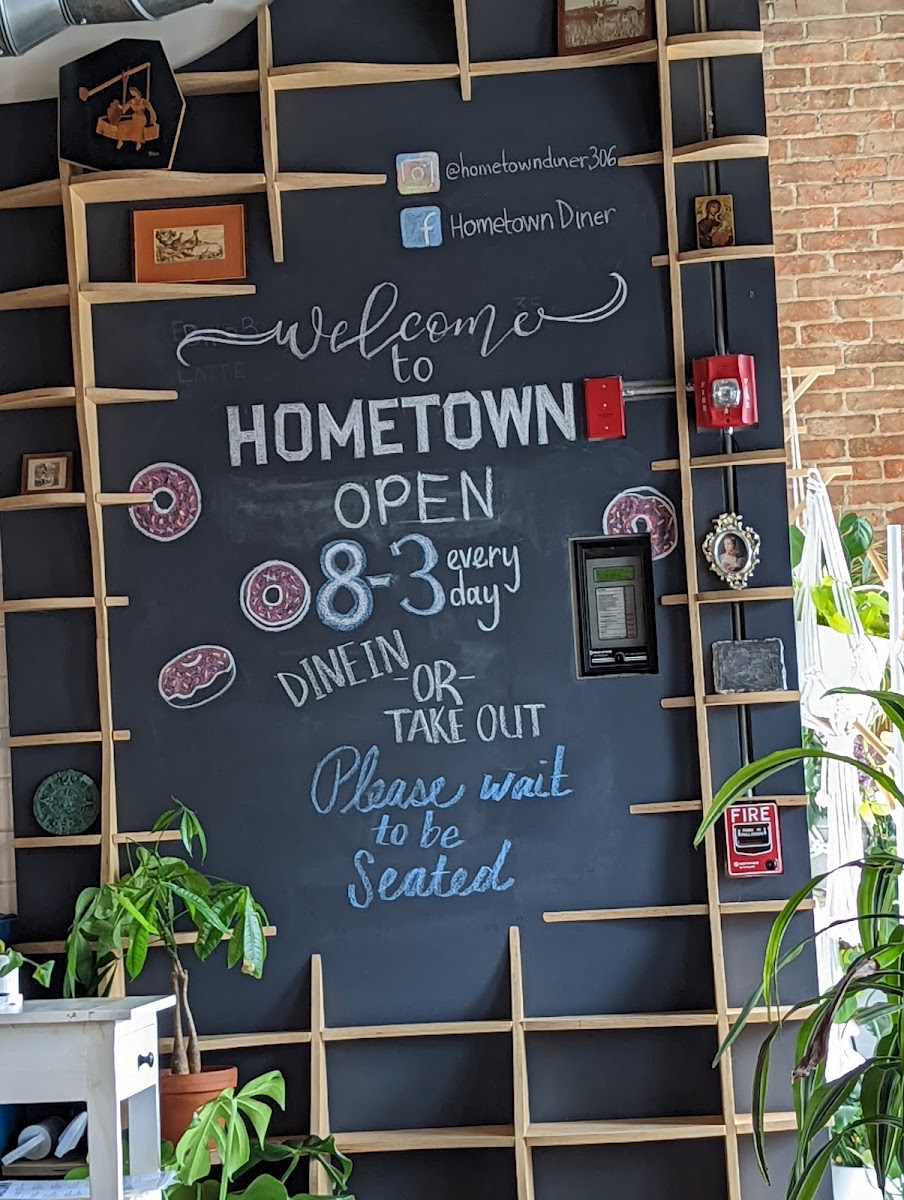 @hometowndiner306
f Hometown Diner
Welcome
to
HOMETOWN
OPEN
8-3 every
day
DINE IN
-OR-
TAKE OUT
Please wait
to be
Seated
LATTE
35
FIRE
FIRE
FIRE